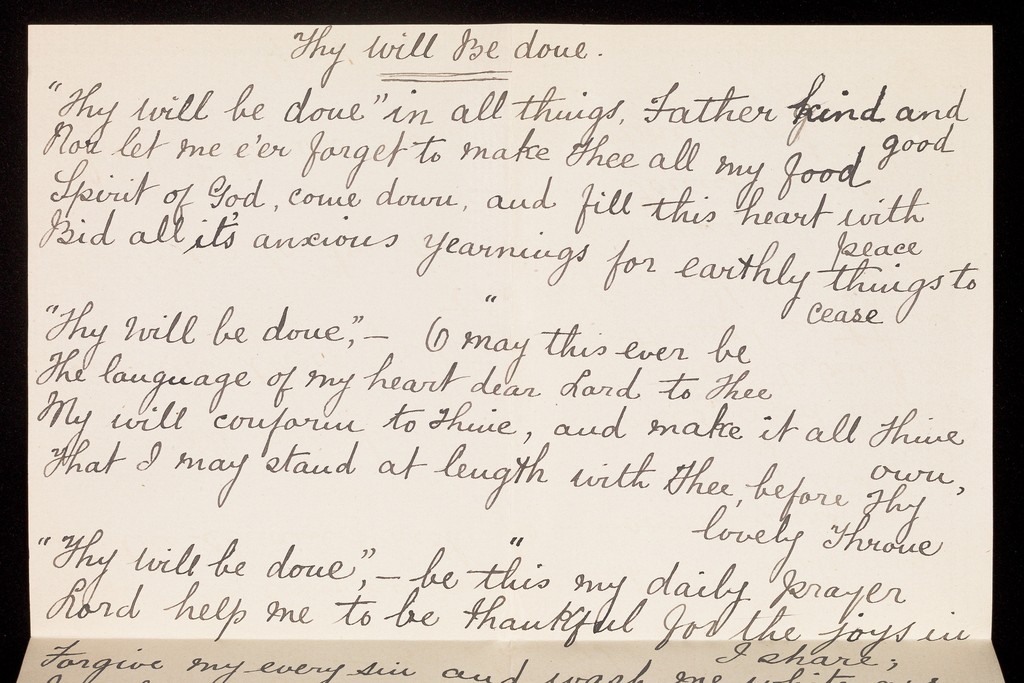 Thy will Be done.
"Thy will be done" in all things, Father kind and
good
Nor let me e'er forget to make Thee all my food
Spirit of God, come down, and fill this heart with
peace
Bid all it's anxious yearnings for earthly things to
cease
"
"Thy will be done",— O may this ever be
The language of my heart dear Lord to Thee
My will conform to Thine, and make it all Thine
own,
That I may stand at length with Thee, before Thy
lovely Throne
"
"Thy will be done",— be this my daily prayer
Lord help me to be thankful for the joys in
I share;
Forgive my every sin and wash me white